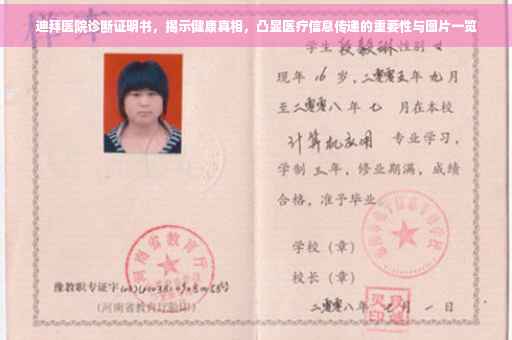 迪拜医院诊断证明书，揭示健康真相，凸显医疗信息传递的重要性与图片一览
学生段毅琳性别女
现年16岁，二零零五年九月
至二零零八年七月在本校
计算机应用 专业学习，
学制三年，修业期满，成绩
合格，准予毕业。
学校（章）
校长（章）
二零零八年七月一日
河南省教育厅
豫教职专证字
（河南省教育厅验印）